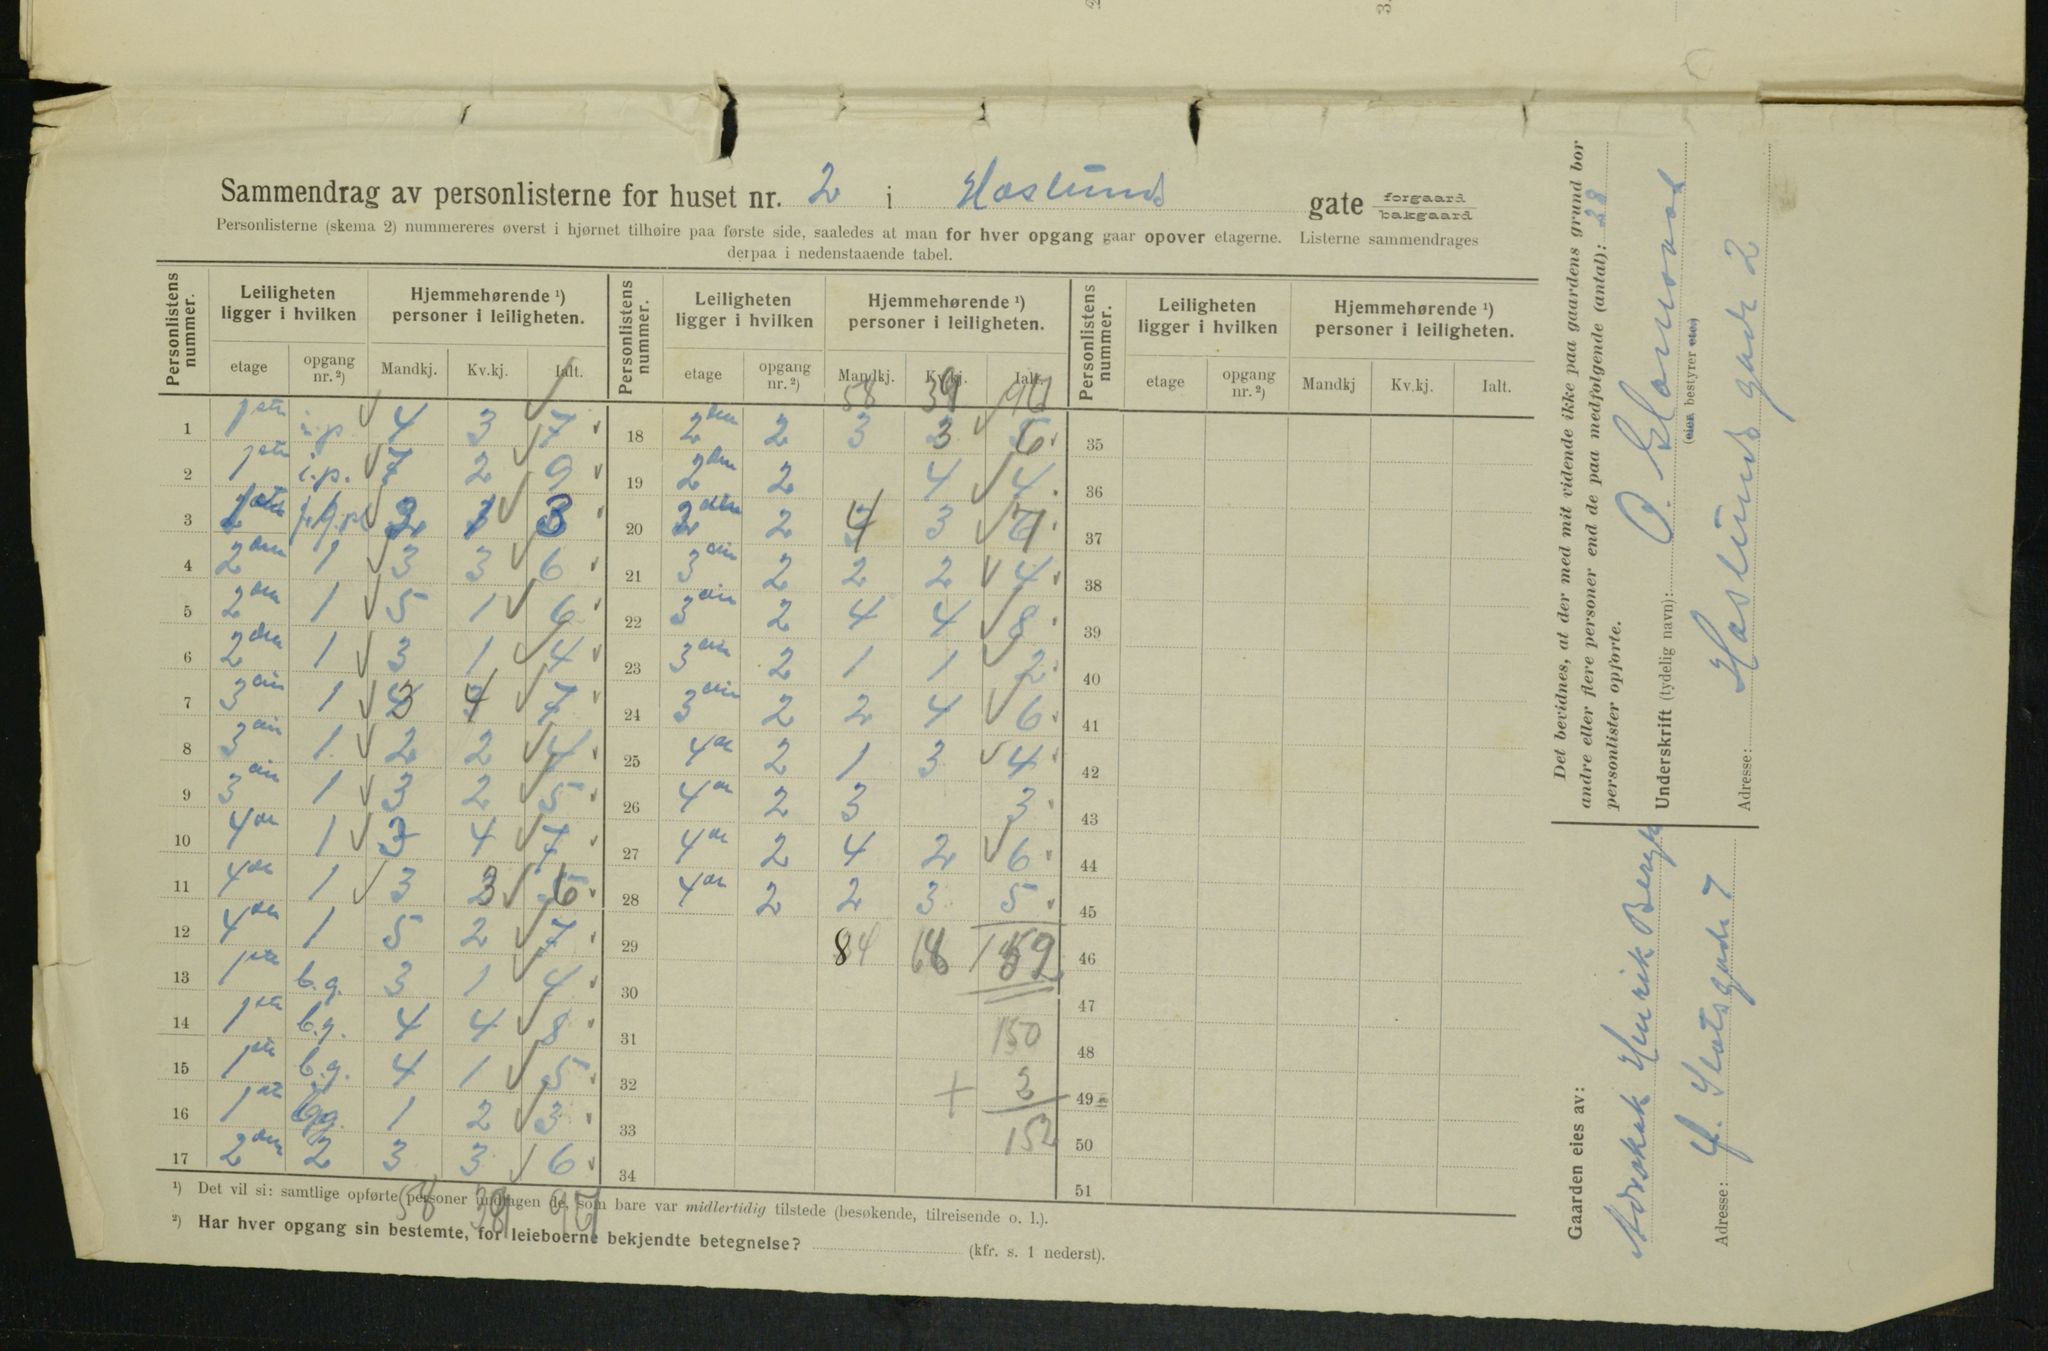 Sammendrag av personlisterne for huset nr. 2 i Haslunds gate forgaard bakgaard
Personlisterne (skema 2) nummereres øverst i hjørnet tilhøire paa første side, saaledes at man for hver opgang gaar opover etagerne. Listerne sammendrages
derpaa i nedenstaaende tabel.
Personlistens nummer. Leiligheten ligger i hvilken Hjemmehørende ¹) personer i leiligheten. Personlistens nummer. Leiligheten ligger i hvilken Hjemmehørende ¹) personer i leiligheten. Personlistens nummer. Leiligheten ligger i hvilken Hjemmehørende ¹) personer i leiligheten.
etage opgang nr. ²) Mandkj. Kv.kj. Ialt. etage opgang nr. ²) Mandkj. Kv.kj. Ialt. etage opgang nr. ²) Mandkj Kv.kj. Ialt.
58 39 97
1 1ste i.p. 4 3 7 18 2den 2 3 3 6 35
2 1ste i.p. 7 2 9 19 2den 2 4 4 36
3 2 1 3 20 2den 2 4 3 7 37
4 2den 1 3 3 6 21 3die 2 2 2 4 38
5 2den 1 5 1 6 22 3die 2 4 4 8 39
6 2den 1 3 1 4 23 3die 2 1 1 2 40
7 3die 1 3 4 7 24 3die 2 2 4 6 41
8 3die 1 2 2 4 25 4de 2 1 3 4 42
9 3die 1 3 2 5 26 4de 2 3 3 43
10 4de 1 3 4 7 27 4de 2 4 2 6 44
11 4de 1 3 3 6 28 4de 2 2 3 5 45
12 4de 1 5 2 7 29 84 68 152 46
13 1ste b.g. 3 1 4 30 47
14 1ste b.g. 4 4 8 31 150 48
15 1ste b.g. 4 1 5 32 + 2 49
16 1ste b.g. 1 2 3 33 152 50
17 2den 2 3 3 6 34 51
58 39 97
¹) Det vil si: samtlige opførte personer undtagen de, som bare var midlertidig tilstede (besøkende, tilreisende o. l.).
²) Har hver opgang sin bestemte, for leieboerne bekjendte betegnelse? (kfr. s. 1 nederst).
Det bevidnes, at der med mit vidende ikke paa gaardens grund bor
andre eller flere personer end de paa medfølgende (antal): 28
personlister opførte.
Underskrift (tydelig navn):
(eier bestyrer etc)
Adresse: Haslunds gade 2
Gaarden eies av:
Henrik Bergh
Adresse: Slotsgade 7